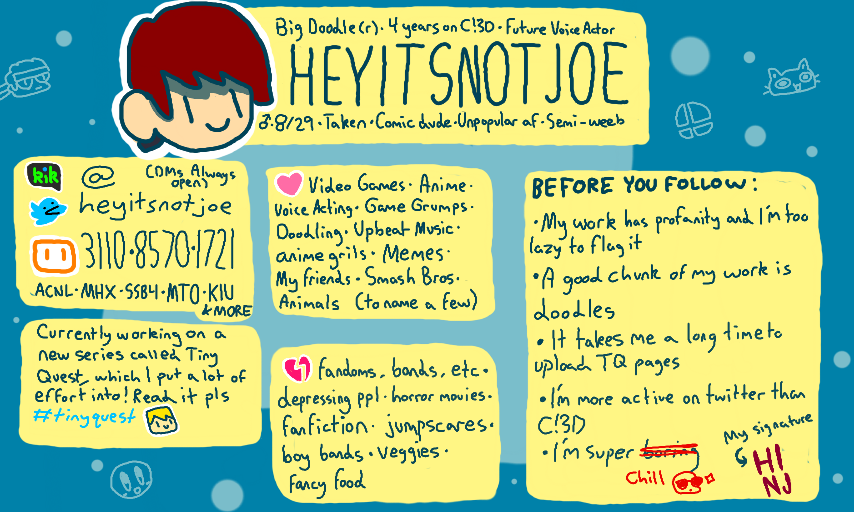 Big Doodle(r) · 4 years on C!3D · Future Voice Actor
HEYITSNOTJOE
♂·8/29·Taken·Comic dude·Unpopular af·Semi-weeb
kik @ (DMs Always
open)
heyitsnotjoe
3110·8570·1721
ACNL·MHX·SSB4·MTO·KIU
& MORE
Currently working on a
new series called Tiny
Quest, which I put a lot of
effort into! Read it pls
#tinyquest
Video Games · Anime ·
Voice Acting · Game Grumps ·
Doodling · Upbeat Music ·
anime grils · Memes ·
My friends · Smash Bros ·
Animals (to name a few)
fandoms, bands, etc ·
depressing ppl · horror movies ·
fanfiction · jumpscares ·
boy bands · veggies ·
fancy food
BEFORE YOU FOLLOW:
· My work has profanity and I'm too
lazy to flag it
· A good chunk of my work is
doodles
· It takes me a long time to
upload TQ pages
· I'm more active on twitter than
C!3D
· I'm super boring
Chill
My signature
HI
NJ